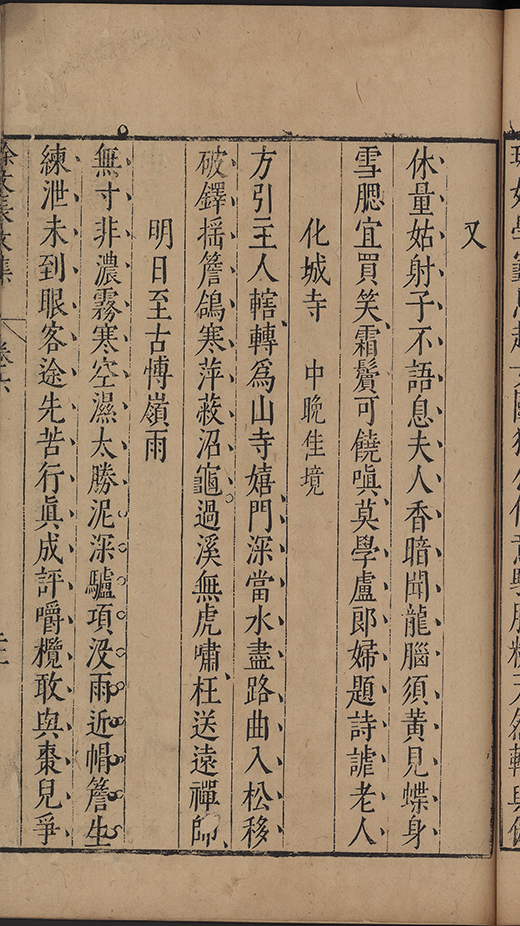 又
休量姑射子不語息夫人香暗聞龍腦須黃見蝶身
雪腮宜買笑霜鬢可饒嗔莫學盧郎婦題詩謔老人
化城寺 中晚佳境
方引王人轄轉為山寺嬉門深當水盡路曲入松移
破鐸揺簷鴿寒萍蔽沼龜過溪無虎嘯枉送遠禪師
明日至古博嶺雨
無寸非濃霧寒空濕太勝泥深驢項沒雨近帽簷生
練泄未到眼客途先苦行真成評嚼欖敢與棗兒爭
徐文長文集 卷六